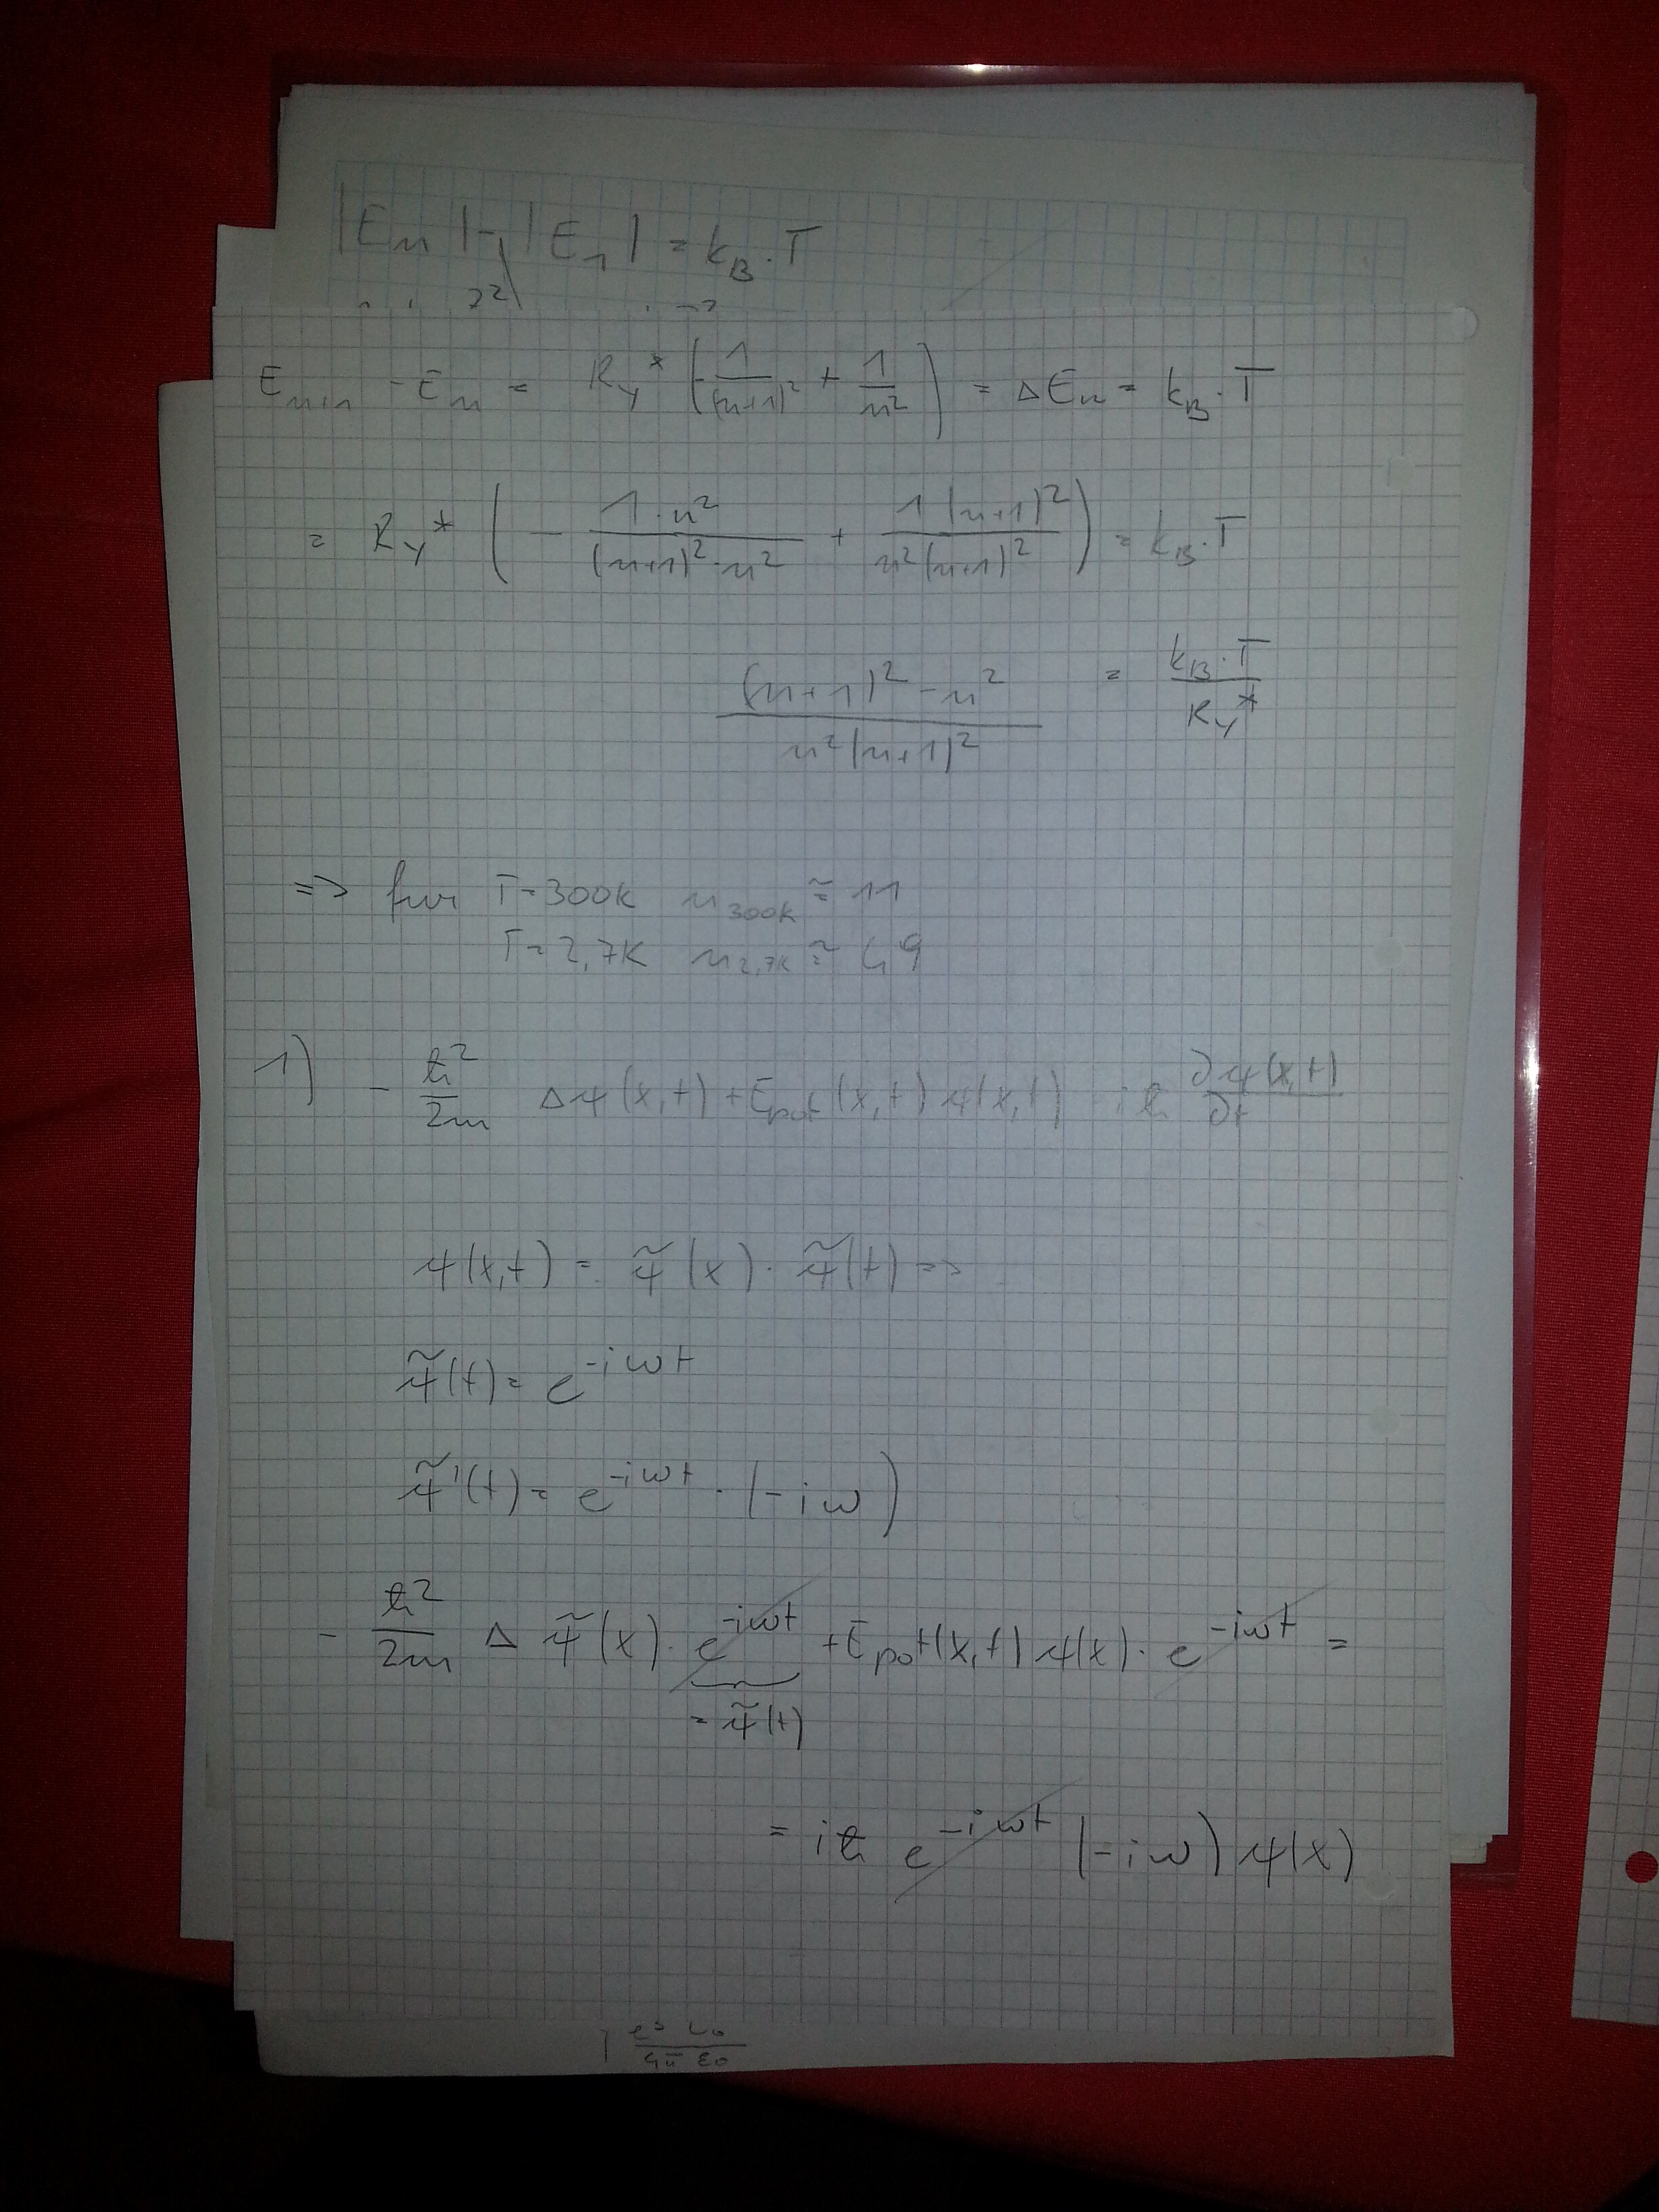 |E_n| - |E_1| = k_B · T
E_{n+1} - E_n = R_y* (-1/(n+1)² + 1/n²) = ΔE_n = k_B · T
= R_y* (- 1·n²/((n+1)²·n²) + 1(n+1)²/(n²(n+1)²)) = k_B · T
((n+1)² - n²)/(n²(n+1)²) = k_B·T/R_y*
=> fur T=300K n_{300K} ≅ 11
T=2,7K n_{2,7K} ≅ 49
1) - ħ²/2m Δψ(x,t) + E_pot(x,t) ψ(x,t) = iħ ∂ψ(x,t)/∂t
ψ(x,t) = ψ̃(x) · ψ̃(t) =>
ψ̃(t) = e^{-iωt}
ψ̃'(t) = e^{-iωt} · (-iω)
- ħ²/2m Δ ψ̃(x) · e^{-iωt} + E_pot(x,t) ψ(x) · e^{-iωt} =
= ψ̃(t)
= iħ e^{-iωt} (-iω) ψ(x)